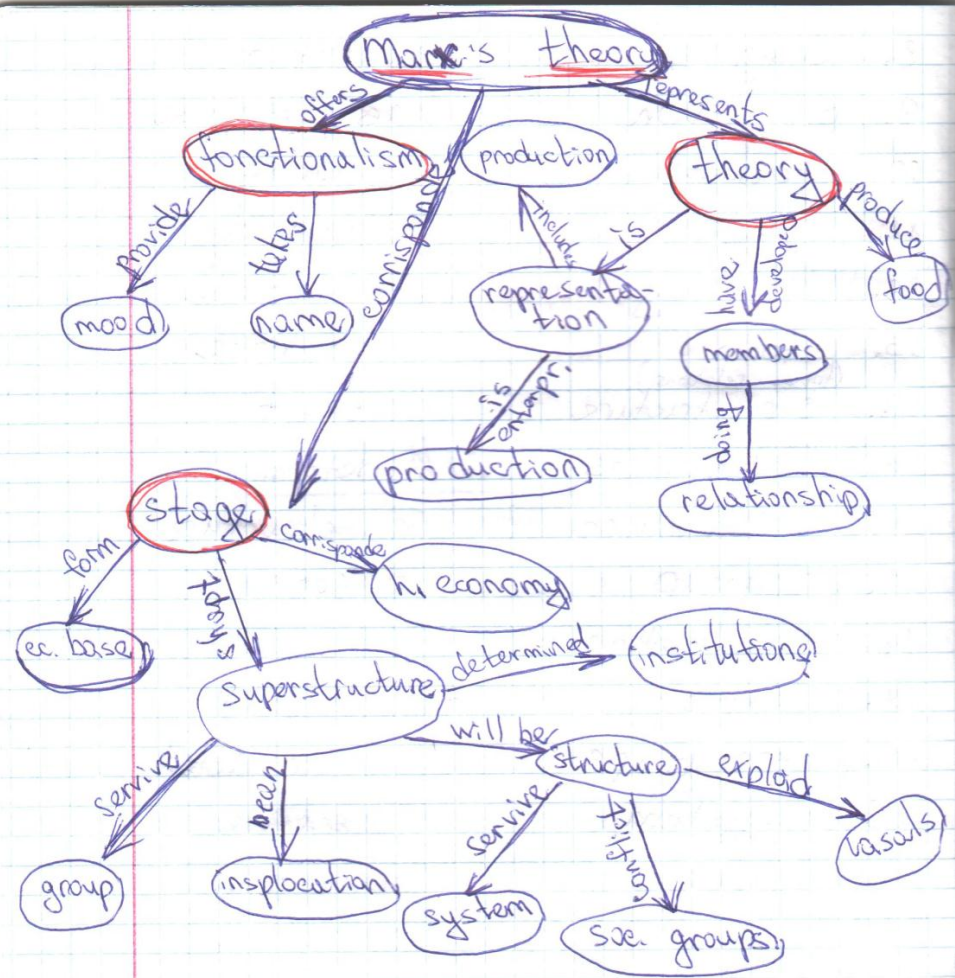 Marx's theory
offers
represents
fonctionalism
production
theory
corrisponde
provide
takes
includes
is
have
developed
produce
mood
name
representa-
tion
members
food
is
enterpr.
doing
production
relationship
stage
form
corrisponde
ec. base
shapt
h. economy
superstructure
determined
institutions
will be
structure
explod
servive
mean
servive
conflict
vasals
group
insplocation
system
soc. groups